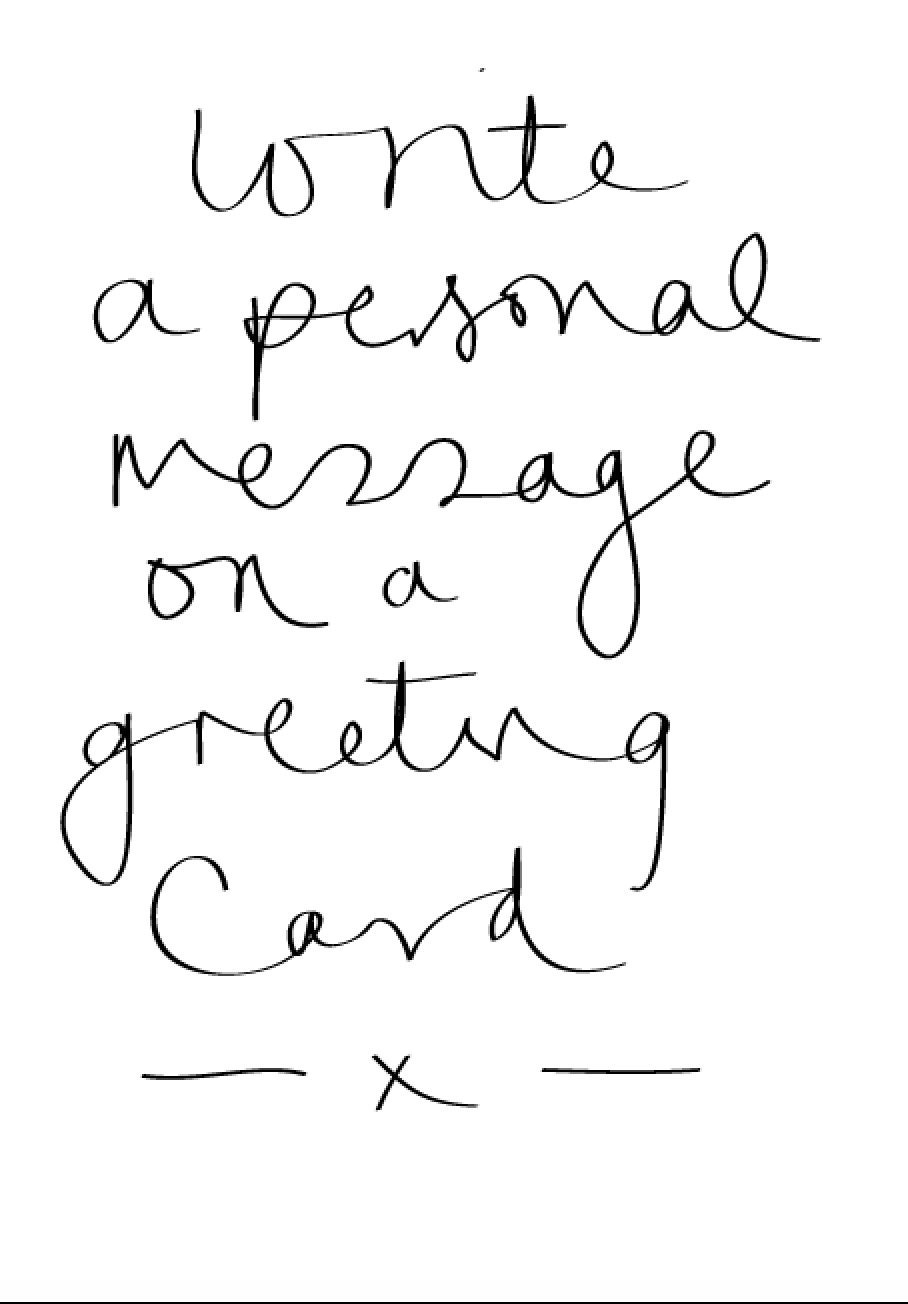 write
a personal
message
on a
greeting
Card
— x —